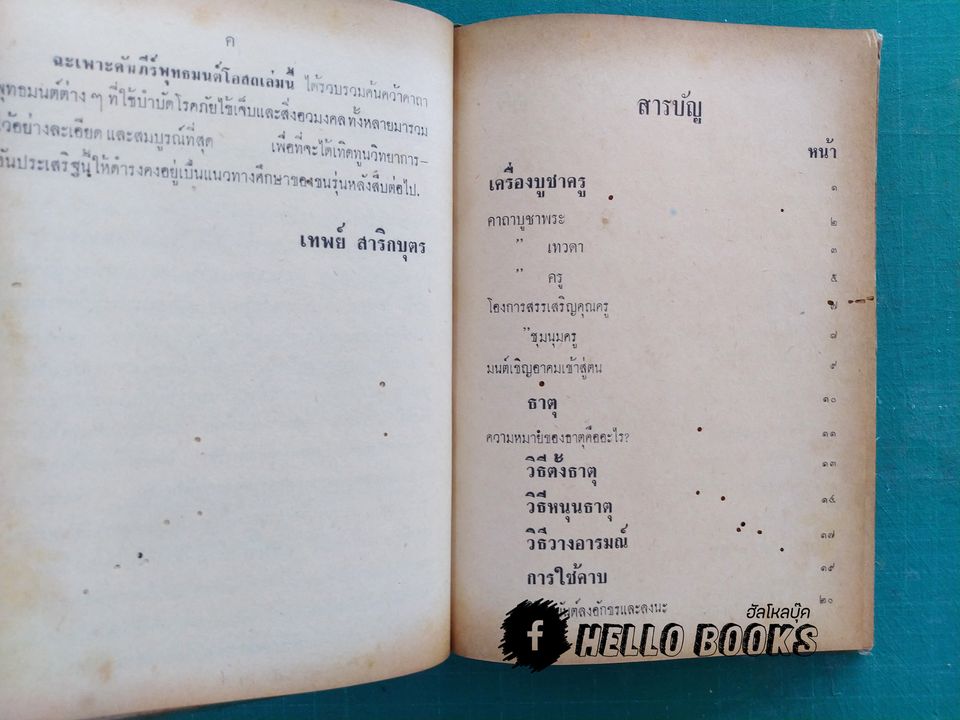 ค
ฉะเพาะคัมภีร์พุทธมนต์โอสถเล่มนี้ ได้รวบรวมค้นคว้าคาถา
พุทธมนต์ต่าง ๆ ที่ใช้บำบัดโรคภัยไข้เจ็บและสิ่งอวมงคล ทั้งหลายมารวม
ไว้อย่างละเอียด และสมบูรณ์ที่สุด เพื่อที่จะได้เทิดทูนวิทยาการ–
อันประเสริฐนี้ ให้ดำรงคงอยู่เป็นแนวทางศึกษาของชนรุ่นหลังสืบต่อไป.
เทพย์ สาริกบุตร
สารบัญ
หน้า
เครื่องบูชาครู ๑
คาถาบูชาพระ ๒
” เทวดา ๓
” ครู ๕
โองการสรรเสริญคุณครู ๗
”ชุมนุมครู ๗
มนต์เชิญอาคมเข้าสู่ตน ๙
ธาตุ ๑๐
ความหมายของธาตุคืออะไร? ๑๑
วิธีตั้งธาตุ ๑๓
วิธีหนุนธาตุ ๑๔
วิธีวางอารมณ์ ๑๗
การใช้คาบ ๑๙
ลงอักขรและลงนะ ๒๐
ฮัลโหลบุ๊ค
f HELLO BOOKS